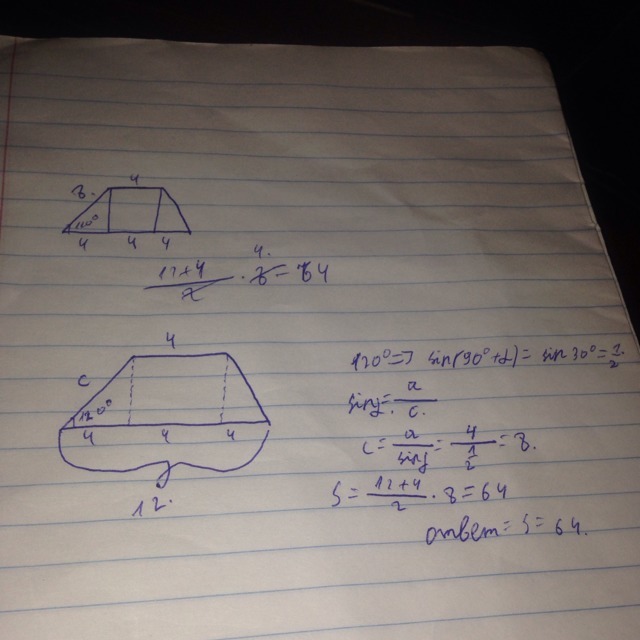 4
8.
120°
4 4 4
4.
12+4/2 · 8 = 64
4
c
120°
4 4 4
12.
120° => sin(90°+α) = sin 30° = 1/2
sin y = a/c.
c = a/sin y = 4/(1/2) = 8.
S = 12+4/2 · 8 = 64
ответ = S = 64.